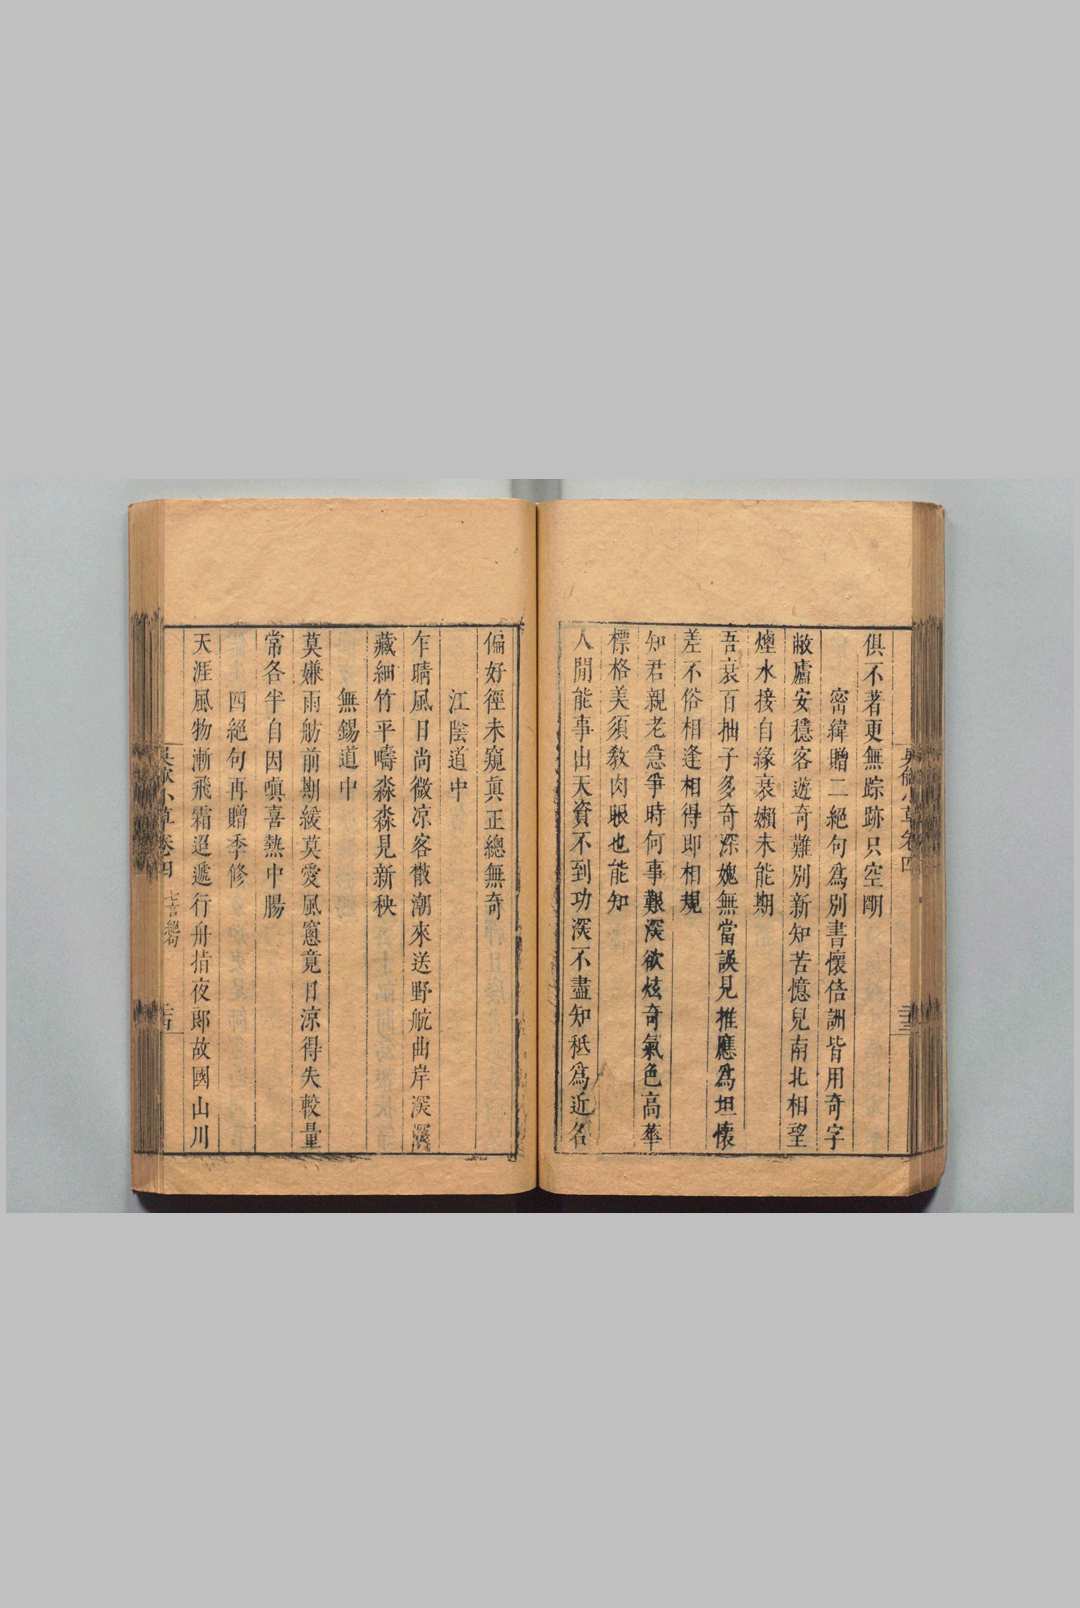 俱不著更無踪跡只空嗍
密緯贈二絕句爲別書懷倍詶皆用奇字
敝廬安穩客遊奇難別新知苦憶兒南北相望
煙水接自緣衰嬾未能期
吾衰百拙子多奇深媿無當誤見推應爲坦懷
差不俗相逢相得即相規
知君親老急爭時何事艱深欲炫奇氣色高華
標格美須敎肉眼也能知
人間能事出天資不到功深不盡知秪爲近名
偏好徑未窺眞正總無奇
江陰道中
乍晴風日尚微凉客散潮來送野航曲岸深深
藏細竹平疇淼淼見新秧
無錫道中
莫嫌雨舫前期緩莫愛風窻竟日凉得失較量
常各半自因嗔喜熱中腸
四絕句再贈季修
天涯風物漸飛霜迢遞行舟指夜郎故國山川
小草卷四
七言絕句